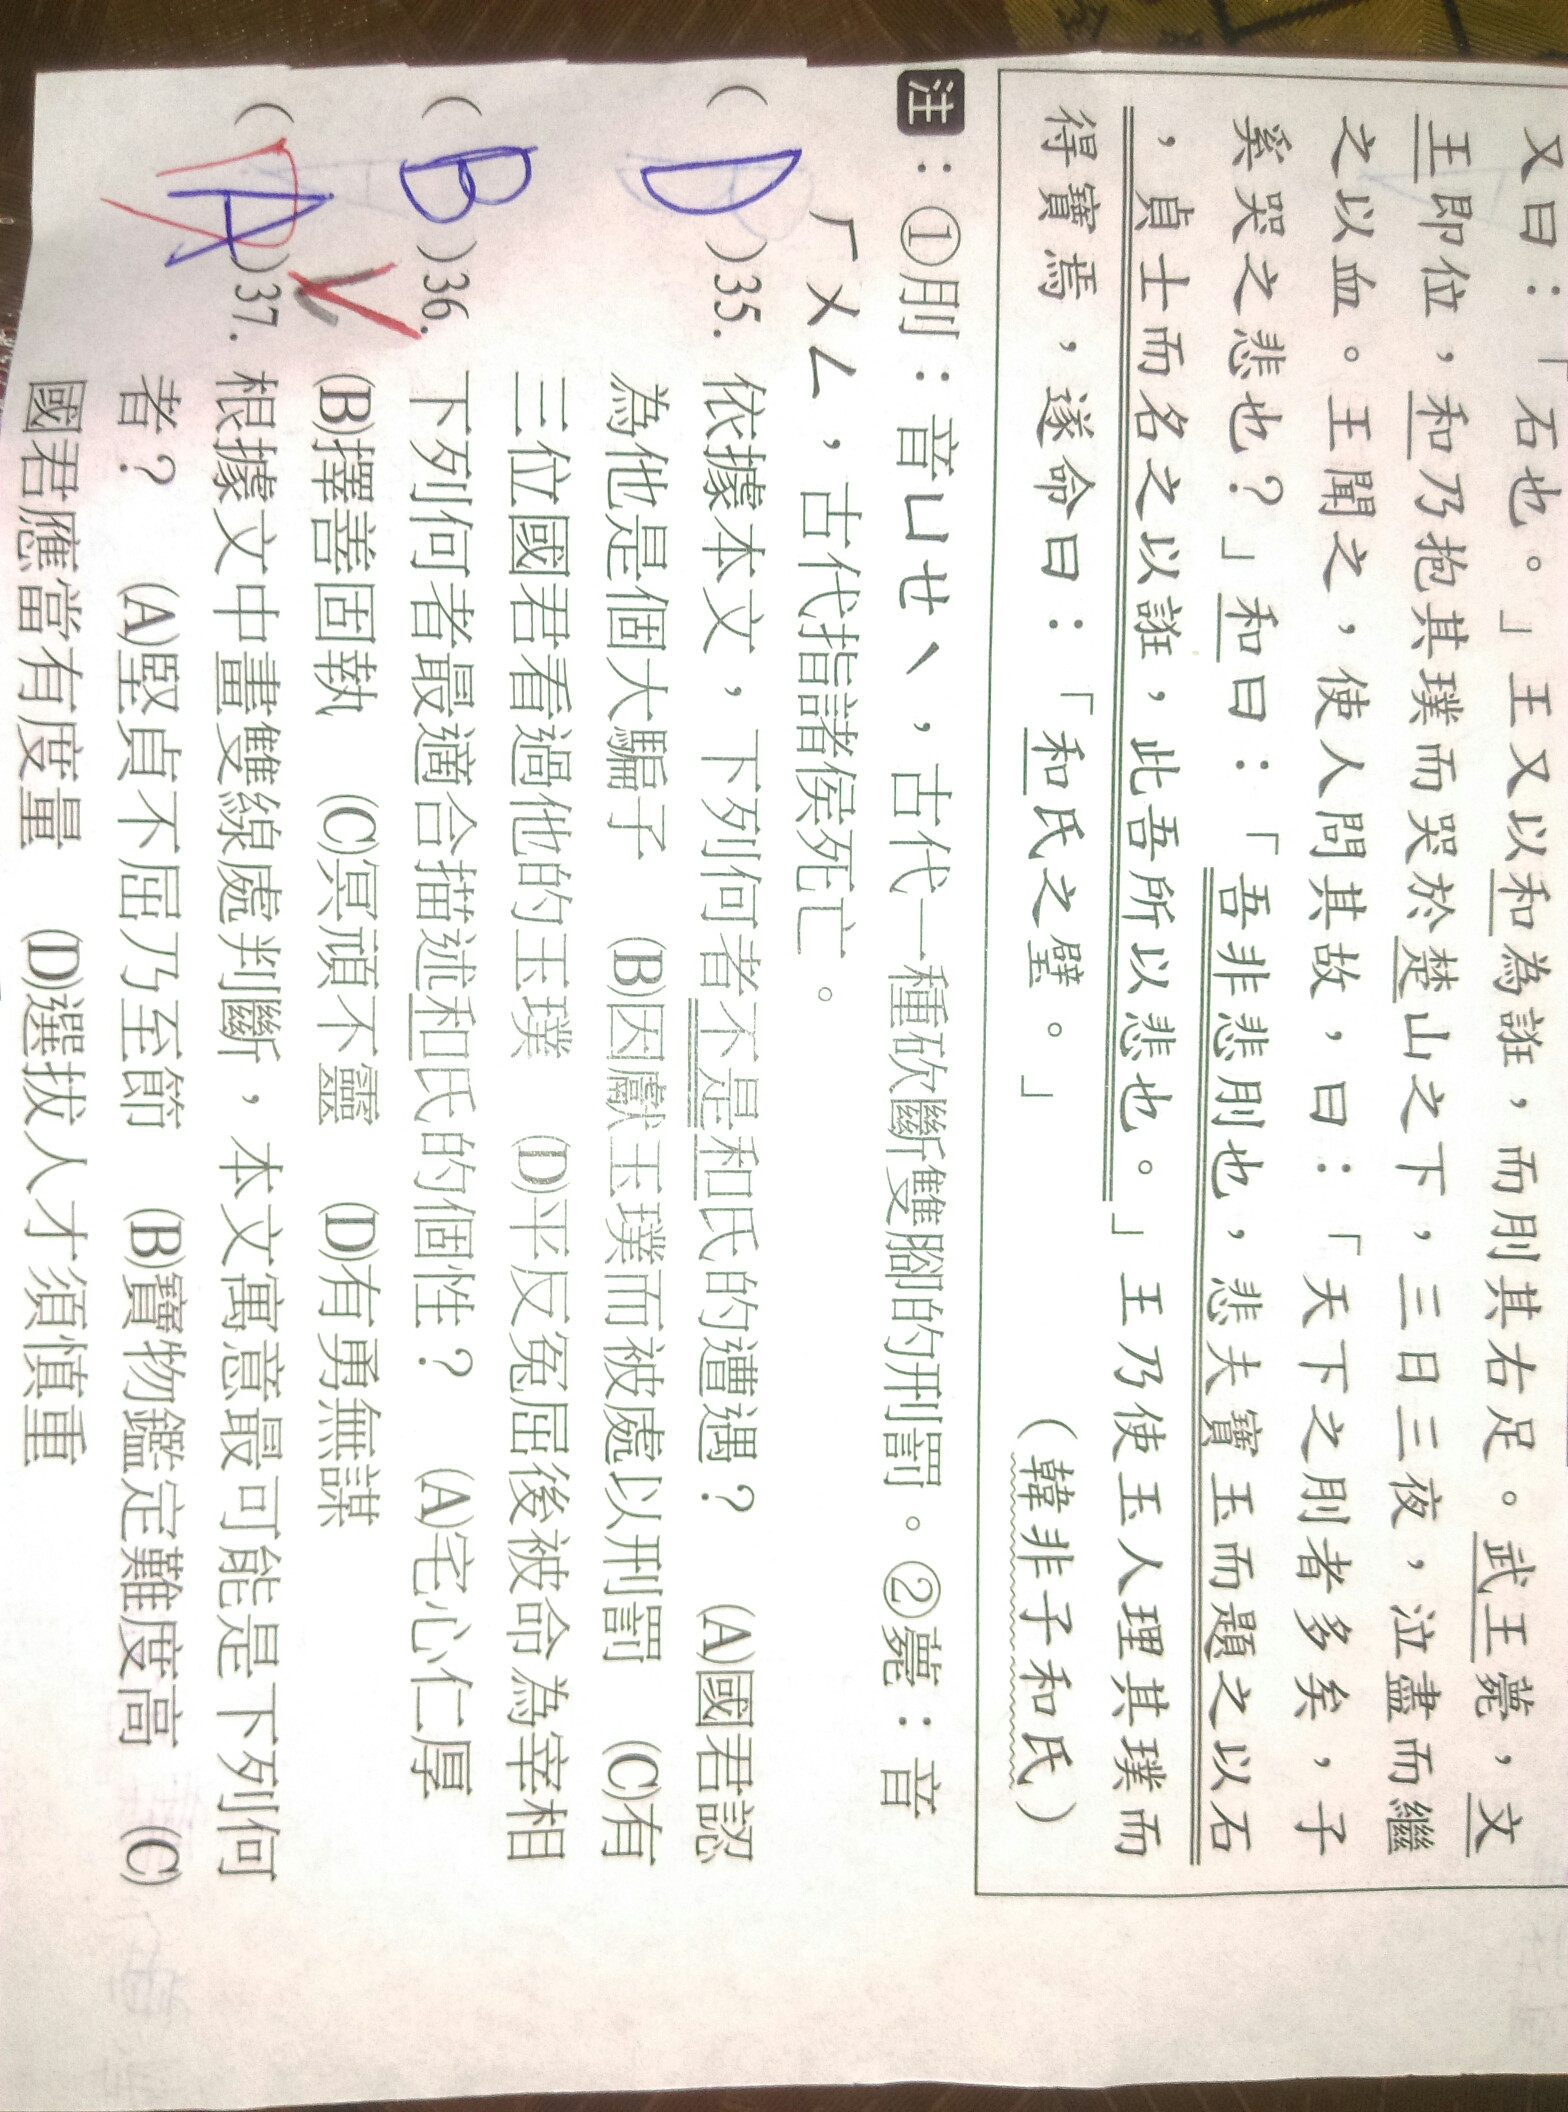 又曰：「石也。」王又以和為誑，而刖其右足。武王薨，文
王即位，和乃抱其璞而哭於楚山之下，三日三夜，泣盡而繼
之以血。王聞之，使人問其故，曰：「天下之刖者多矣，子
奚哭之悲也？」和曰：「吾非悲刖也，悲夫寶玉而題之以石
，貞士而名之以誑，此吾所以悲也。」王乃使玉人理其璞而
得寶焉，遂命曰：「和氏之璧。」（韓非子和氏）
注：①刖：音ㄩㄝˋ，古代一種砍斷雙腳的刑罰。②薨：音
ㄏㄨㄥ，古代指諸侯死亡。
（D）35.依據本文，下列何者不是和氏的遭遇？　(A)國君認
為他是個大騙子　(B)因獻玉璞而被處以刑罰　(C)有
三位國君看過他的玉璞　(D)平反冤屈後被命為宰相
（B）36.下列何者最適合描述和氏的個性？　(A)宅心仁厚
(B)擇善固執　(C)冥頑不靈　(D)有勇無謀
（A）37.根據文中畫雙線處判斷，本文寓意最可能是下列何
者？　(A)堅貞不屈乃至節　(B)寶物鑑定難度高　(C)
國君應當有度量　(D)選拔人才須慎重